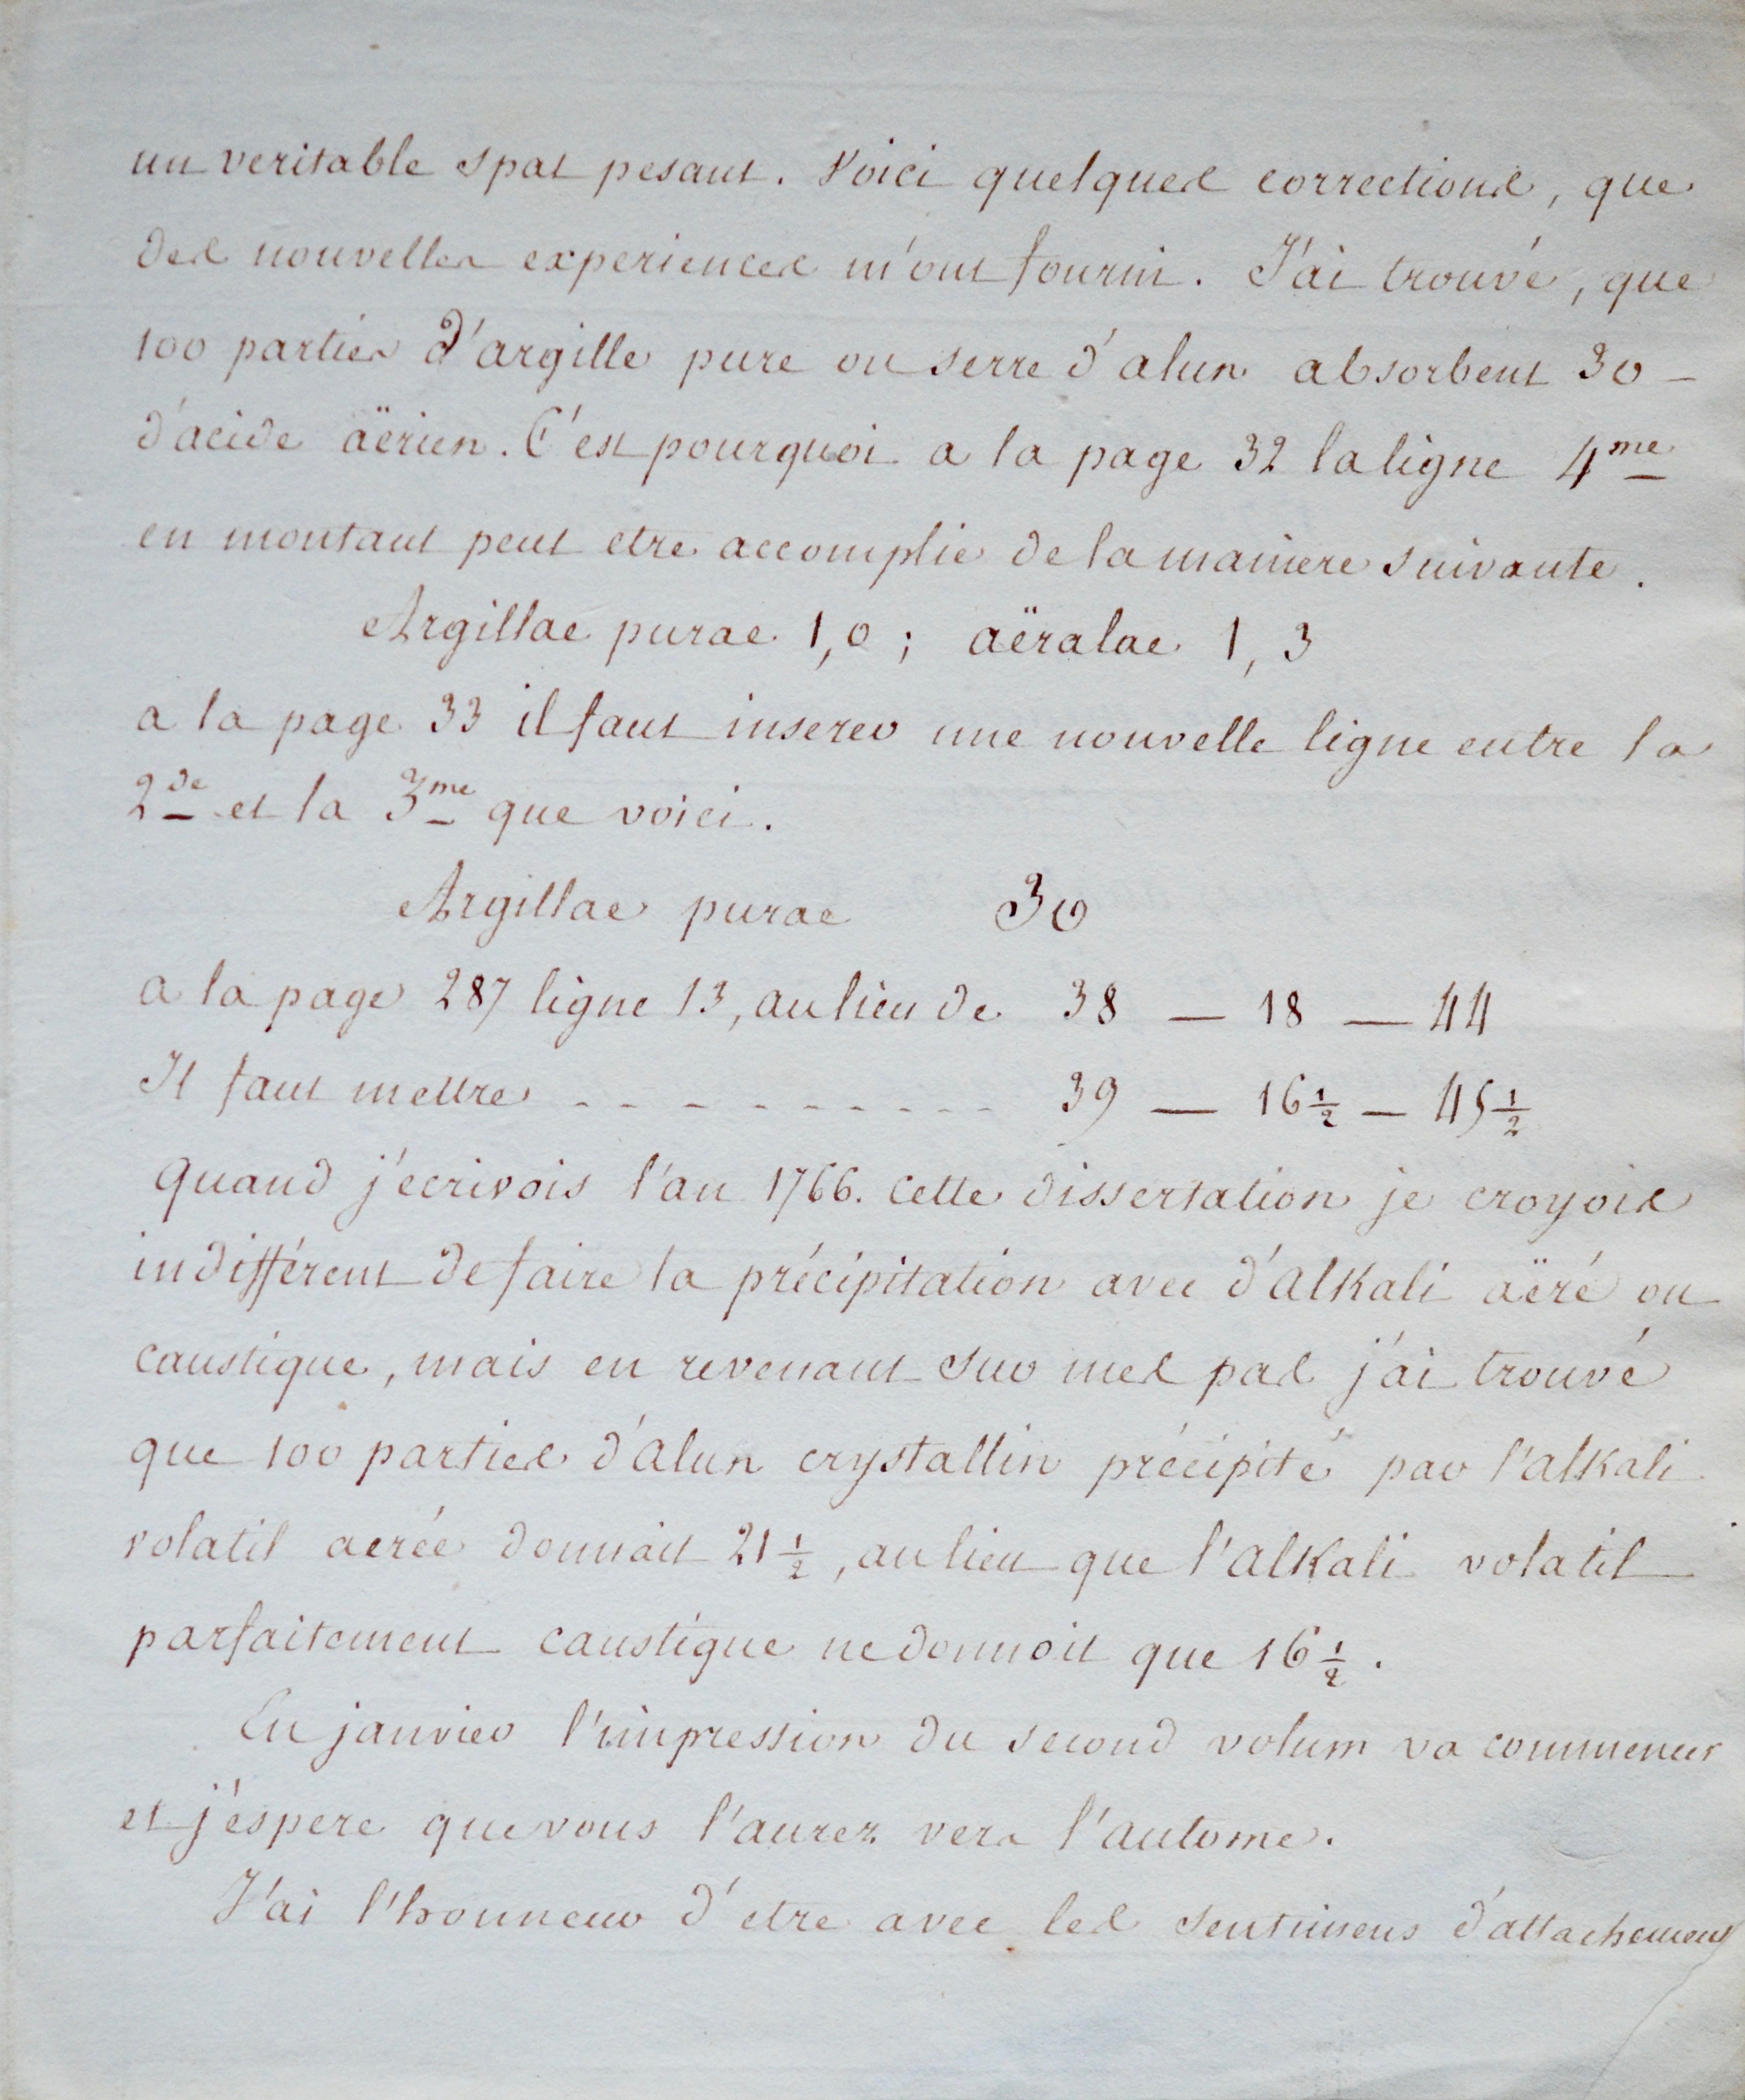 un veritable spat pesant. Voici quelques corrections, que
des nouvelles experiences m'ont fourni. J'ai trouvé, que
100 parties d'argille pure ou terre d'alun absorbent 30 –
d'acide aërien. C'est pourquoi a la page 32 la ligne 4me
en montant peut etre accomplie de la maniere suivante.
Argillae purae 1,0; aëratae 1,3
a la page 33 il faut inserer une nouvelle ligne entre la
2de et la 3me que voici.
Argillae purae 30
a la page 287 ligne 13, au lieu de 38 — 18 — 44
Il faut mettre - - - - - - - - - - 39 — 16 1/2 — 45 1/2
Quand j'ecrivois l'an 1766. cette dissertation je croyois
indifférent de faire la précipitation avec d'alkali aëré ou
caustique, mais en revenant sur mes pas j'ai trouvé
que 100 parties d'alun crystallin précipité par l'alkali
volatil aerée donnait 21 1/2, au lieu que l'alkali volatil
parfaitement caustique ne donnoit que 16 1/2.
En janvier l'impression du second volum va commencer
et j'espere que vous l'aurez vers l'automne.
J'ai l'honneur d'etre avec les sentimens d'attachement